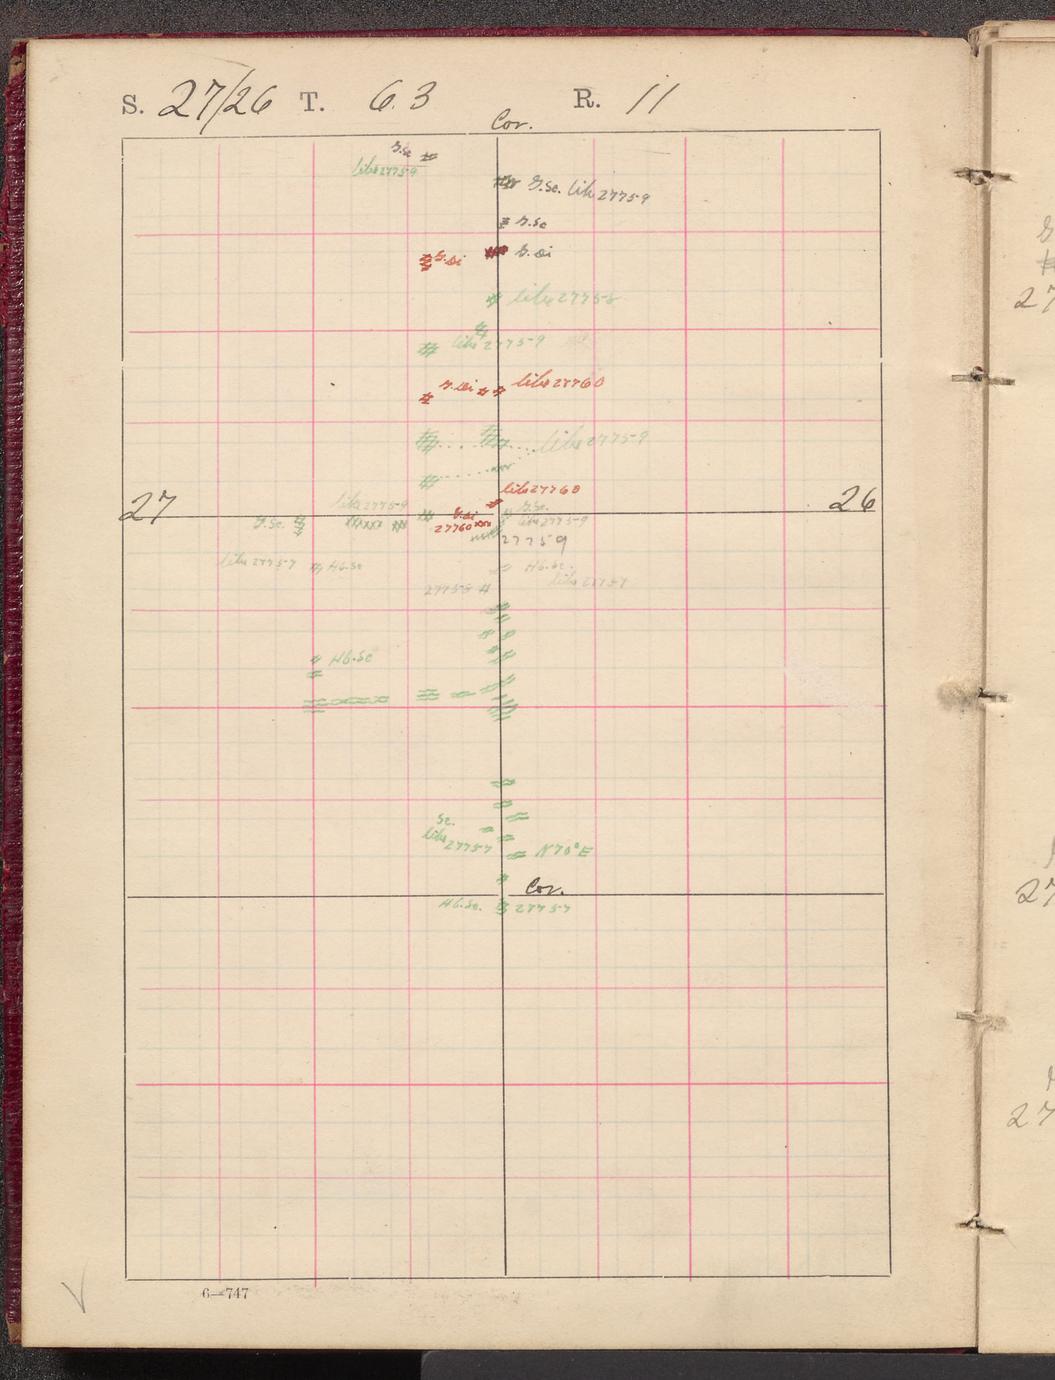 S. 27/26 T. 63 R. 11
Cor.
G.Sc.
like 27759
G.Sc. like 27759
G.Sc
G.Di
G.Di
like 27758
like 27759
G.Di
like 27760
like 27759
like 27760
27
like 27759
26
G.Sc.
G.Di
27760
G.Sc.
like 27759
27759
like 27757
Hb.Sc
Hb.Sc.
like 27757
27758
Hb.Sc
Sc.
like 27757
N70°E
Cor.
Hb.Sc.
27757
6—747